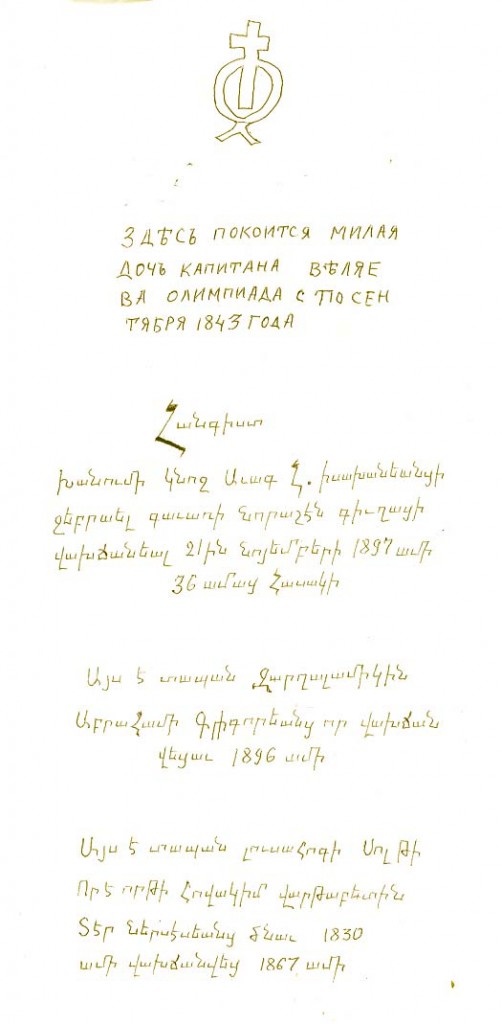 ЗДѢСЬ ПОКОИТСЯ МИЛАЯ
ДОЧЬ КАПИТАНА ВѢЛЯЕ
ВА ОЛИМПИАДА С ПО СЕН
ТЯБРЯ 1843 ГОДА
Հանգիստ
խանումի կնոջ Աւագ Հ. իսախանեանցի
ջեբրաել գաւառի նորաշէն գիւղացի
վախճանեալ 21ին նոյեմբերի 1897 ամի
36 ամայ հասակի
Այս է տապան
Աբրահամի Գրիգորեանց որ վախճան
վեցաւ 1896 ամի
Այս է տապան լուսահոգի
Որ է որթի Հովակիմ վարթաբետին
Տեր ներսէսեանց ծնաւ 1830
ամի վախճանվեց 1867 ամի